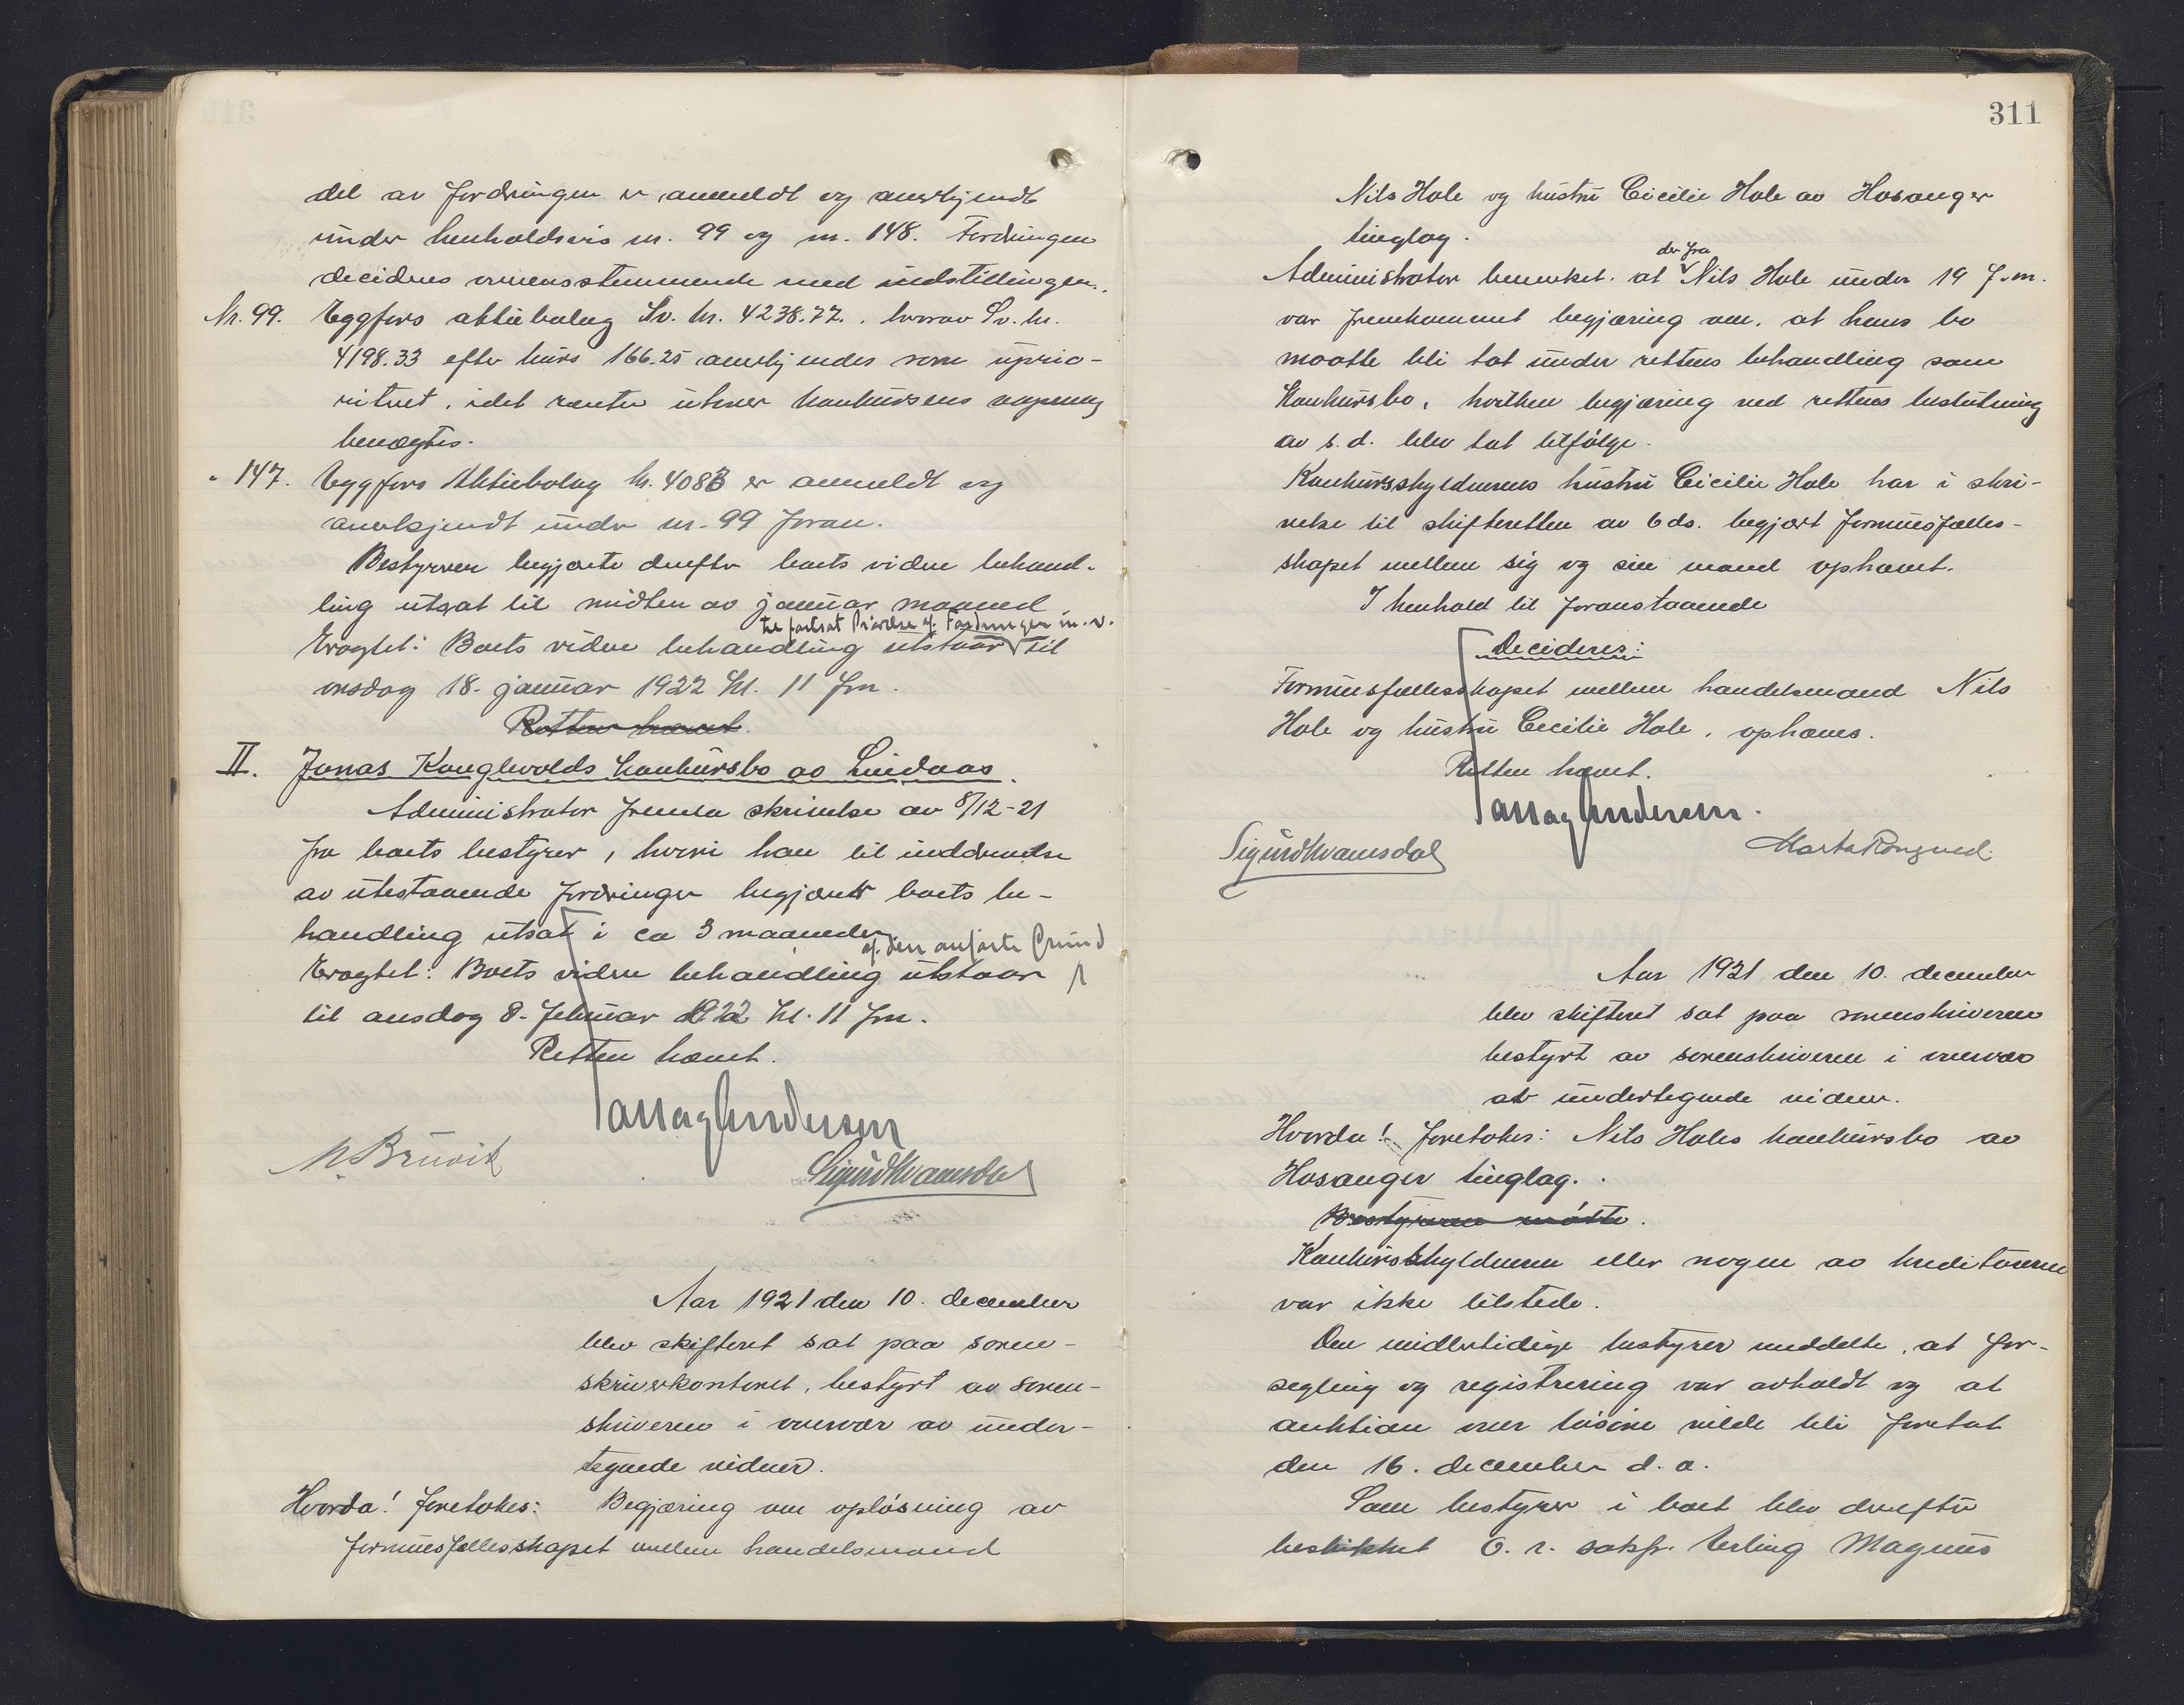 del av fordringen er anmeldt og anerkjendt
under henholdsvis nr. 99 og nr. 148. Fordringen
decideres overensstemmende med indstillingen.
Nr. 99. Eggfors aktiebolag Sv. kr. 4238.77., hvorav Sv. kr.
4198.33 efter kurs 166.25 anerkjendes som uprio-
ritert, idet renter utover konkursens aapning
benegtes.
" 147. Eggfors Aktiebolag kr. 4083 er anmeldt og
anerkjendt under nr. 99 foran.
Bestyreren begjærte derefter boets videre behand-
ling utsat til midten av januar maaned.
til fortsat Prøvelse af Fordringer m.v.
Eragtet: Boets videre behandling utstaar til
onsdag 18. januar 1922 kl. 11 fm.
Retten hævet.
II. Jonas Konglevolds konkursbo av Lindaas.
Administrator fremla skrivelse av 8/12-21
fra boets bestyrer, hvori han til inddrivelse
av utestaaende fordringer begjærer boets be-
handling utsat i ca 3 maaneder.
af den anførte Grund
Eragtet: Boets videre behandling utstaar
til onsdag 8. februar 1922 kl. 11 fm.
Retten hævet.
Andersen
M. Bruvik
Sigurd Kvamsdal
Aar 1921 den 10. december
blev skifteret sat paa soren-
skriverkontoret, bestyrt av soren-
skriveren i overvær av under-
tegnede vidner.
Hvorda! foretokes: Begjæring om opløsning av
formuesfællesskapet mellem handelsmand
311
Nils Hole og hustru Cicilie Hole av Hosanger
tinglag.
der fra
Administrator bemerket at Nils Hole under 19 f.m.
var fremkommet begjæring om, at hans bo
maatte bli tat under rettens behandling som
konkursbo, hvilken begjæring ved rettens beslutning
av s.d. blev tat tilfølge.
Konkursskyldnerens hustru Cicilie Hole har i skri-
velse til skifteretten av 6 ds. begjært formuesfælles-
skapet mellem sig og sin mand ophævet.
I henhold til foranstaaende
Decideres:
Formuesfællesskapet mellem handelsmand Nils
Hole og hustru Cecilie Hole, ophæves.
Retten hævet.
Andersen.
Sigurd Kvamsdal
Marta Rongved.
Aar 1921 den 10. december
blev skifteret sat paa sorenskriveren
bestyrt av sorenskriveren i overvær
av undertegnede vidner.
Hvorda! foretokes: Nils Holes konkursbo av
Hosanger tinglag.
Bestyreren møtte.
Konkursskyldneren eller nogen av kreditorerne
var ikke tilstede.
Den midlertidige bestyrer meddelte, at for-
segling og registrering var avholdt og at
auktion over løsøre vilde bli foretat
den 16. december d.a.
Som bestyrer i boet blev derefter
beskikket O.r. sakfr. Erling Magnus